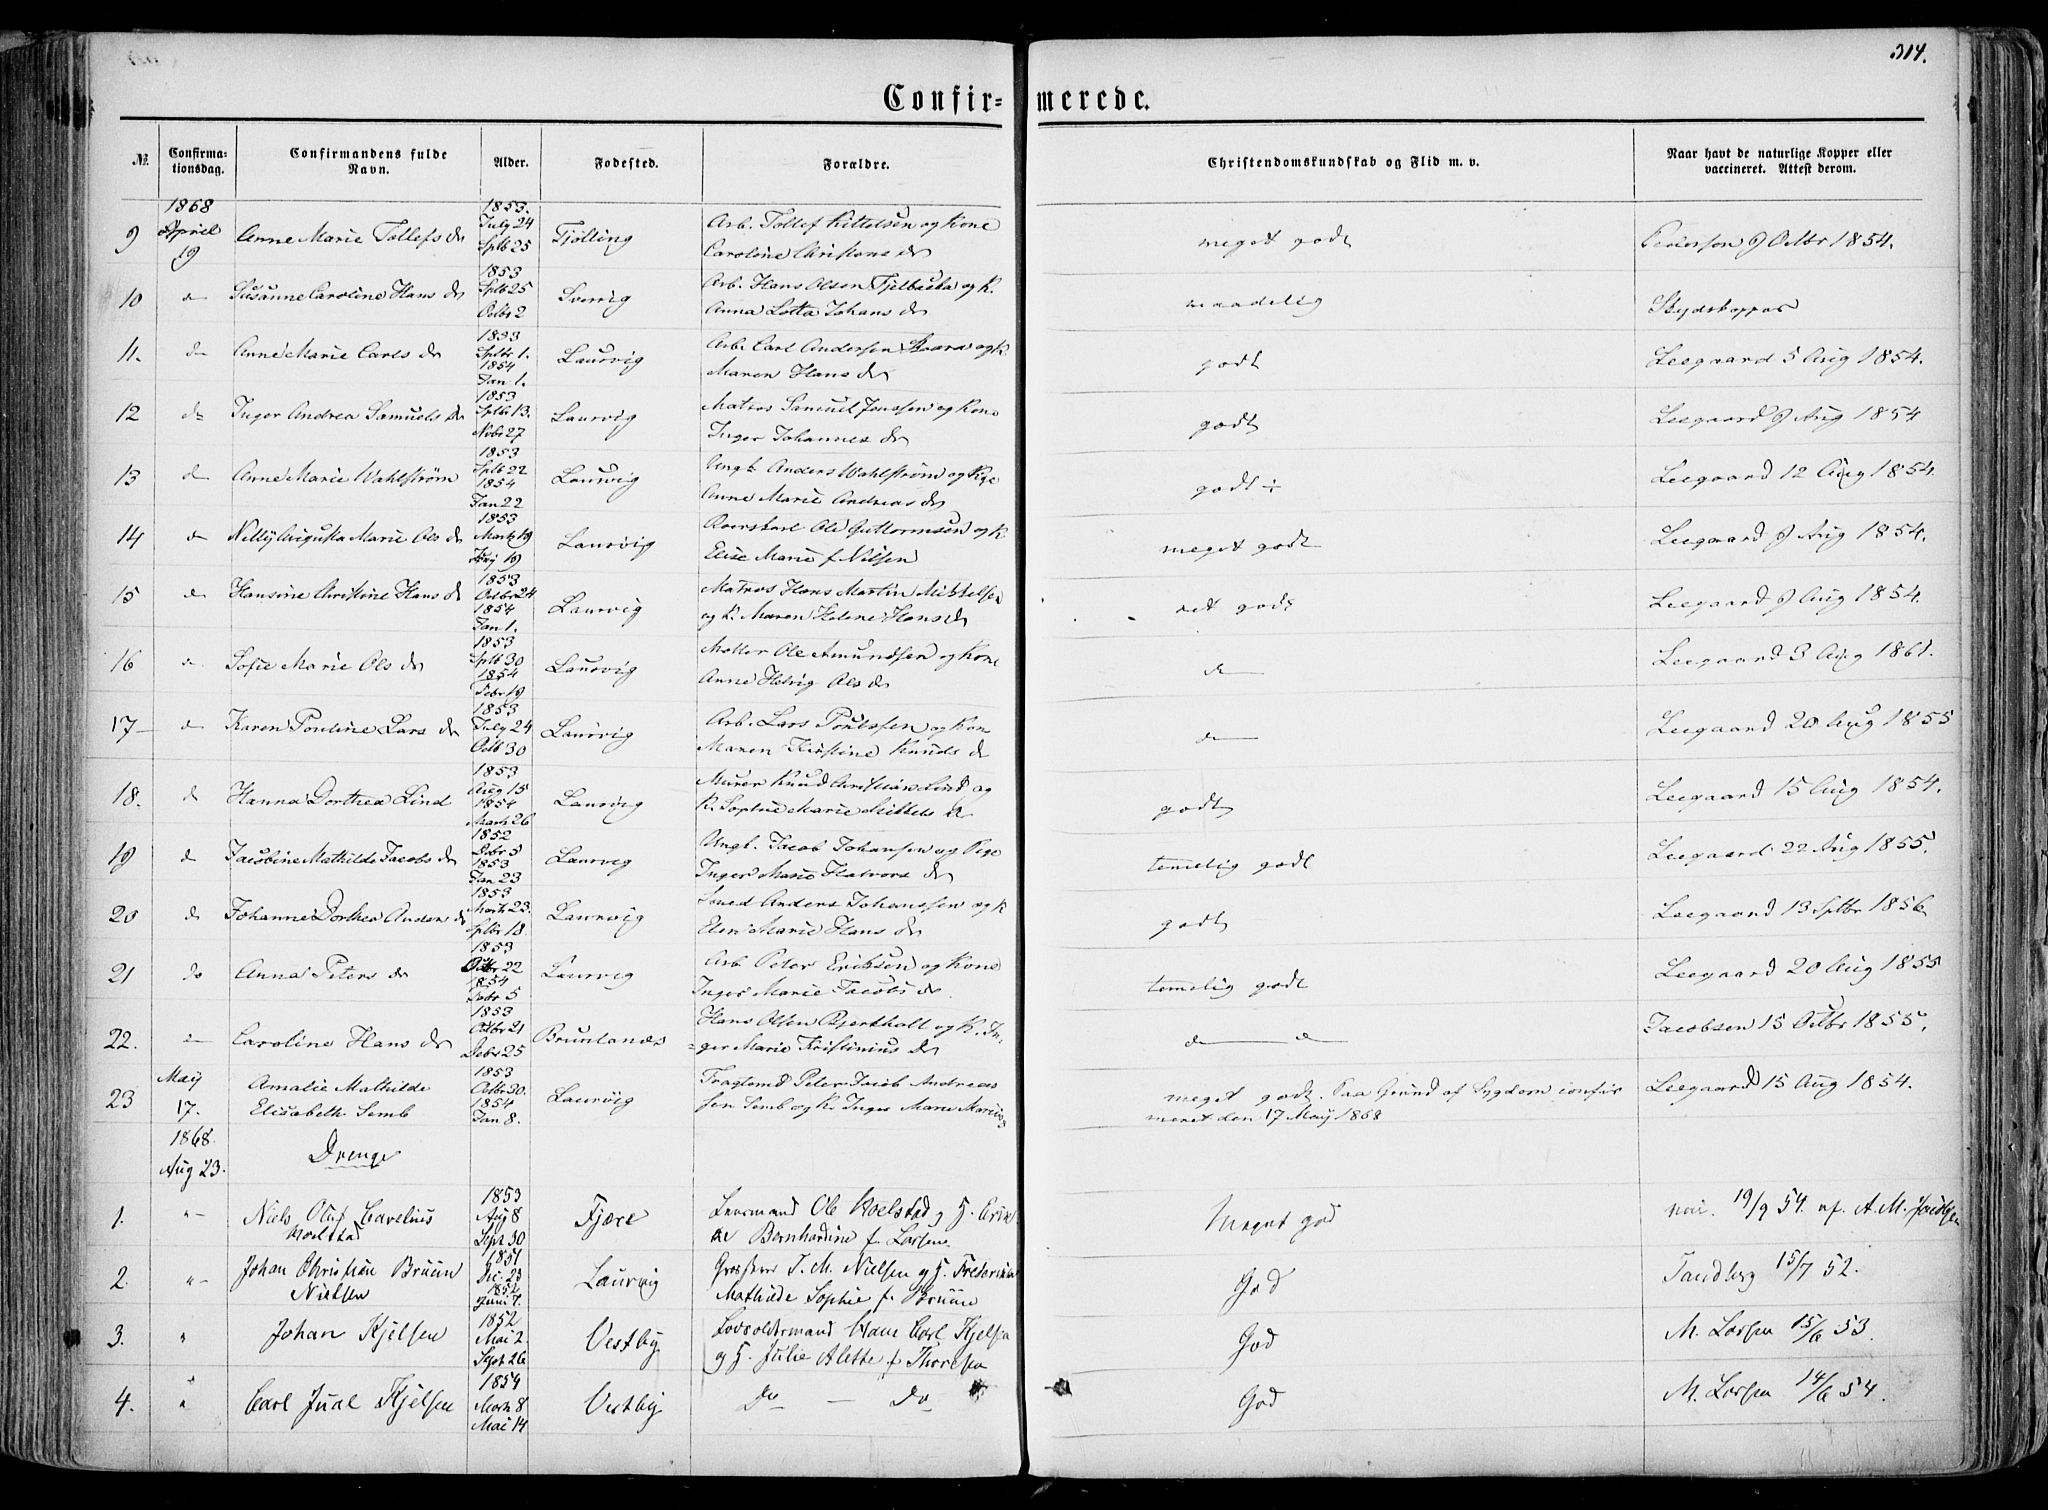 314.
Confirmerede.
№ Confirmationsdag. Confirmandens fulde Navn. Alder. Fødested. Forældre. Christendomskundskab og Flid m. v. Naar havt de naturlige Kopper eller vaccineret. Attest derom.
1868 1853.
9 April 19 Anne Marie Tollefs dr July 24 Sptb 25 Tjølling Arb. Tollef Kittelsen og Kone Caroline Christens dr meget godt 9 Octbr 1854.
10 do Susanne Caroline Hans dr 1853 Sptb 25 Octbr 2 Sverrig Arb. Hans Olsen Fjelbacka og K. Anna Lotta Johans dr maadelig Skydskopper
11. do Anne Marie Carls dr 1853 Sptbr 1. 1854 Jan 1. Laurvig Arb. Carl Andersen og K. Maren Hans dr godt Leegaard 5 Aug 1854.
12 do Inger Andrea Samuels dr 1853 Sptb 13. Nvbr 27 Laurvig Matros Samuel Jenssen og Kone Inger Johannes dr godt Leegaard 9 Aug 1854
13 do Anne Marie Wahlstrøm 1853 Sptb 22 1854 Jan 22 Laurvig Ungk. Anders Wahlstrøm og Pige Anne Marie Andreas dr godt ÷ Leegaard 12 Aug 1854.
14 do Nelly Augusta Marie Ols dr 1853 Marts 19 19 Laurvig Ole Guttormsen og K. Elise Marie f Nilsen meget godt Leegaard 9 Aug 1854.
15 do Hansine Christine Hans dr 1853 Octbr 24 1854 Jan 1. Laurvig Matros Hans Martin Mikkelsen og K. Maren Helene Hans dr ret godt Leegaard 9 Aug 1854.
16 do Sofie Marie Ols dr 1853 Sptb 30 1854 Febr 19 Laurvig Møller Ole Amundsen og Kone Anne Helvig Ols dr do Leegaard 3 Aug 1861.
17 do Karen Pouline Lars dr 1853 July 24 Octb 30 Laurvig Arb. Lars Poulssen og Kone Maren Kirstine Knuds dr do Leegaard 20 Aug 1855
18. do Hanna Dorthea Lind 1853 Aug 15 1854 Marts 26 Laurvig Murer Knud Christian Lind og K. Sophie Marie Mikkels dr godt Leegaard 15 Aug 1854.
19 do Jacobine Mathilde Jacobs dr 1852 Debr 5 1853 Jan 23 Laurvig Ungk. Jacob Johansen og Pige Inger Marie Halvors dr temelig godt Leegaard 22 Aug 1855.
20 do Johanne Dorthea Anders dr 1853 Marts 23. Sptbr 18. Laurvig Smed Anders Johanssen og K Elen Marie Hans dr godt Leegaard 13 Sptbr 1856
21 do Anna Peters dr 1853 Octbr 22 1854 Febr 5 Laurvig Arb Peter Eriksen og Kone Inger Marie Jacobs dr temelig godt Leegaard 20 Aug 1855
22. do Caroline Hans dr 1853 Octbr 21 Debr 25 Brunlanæs Hans Olsen Bjertholt og K. Inger Marie Kristinius dr do do Jacobsen 15 Octbr 1855.
23 May 17. Amalie Mathilde Elisabeth Semb 1853 Octbr 30. 1854 Jan 8. Laurvig Fragtmd Peter Jacob Andreassen Semb og K. Inger Marie meget godt. Paa Grund af Sygdom confirmeret den 17 May 1868 Leegaard 15 Aug 1854.
1868 Aug 23. Drenge
1. "- Niels Oluf Carelius Roelstad 1853 Aug 8 Sept 30 Fjære Ole Roelstad og H. Bernhardine f. Larsen. Meget god 19/9 54. af. A.M.
2. "- Johan Christian Bruun Nielsen 1851 Dec. 23 1852 Juni 7. Laurvig J. M. Nielsen og H. Frederikke Mathilde Sophie f. Bruun God Tandberg 15/7 52.
3. " Johan Kjelsen 1852 Mai 2. Sept 26 Vestby Lodsoldermand Hans Carl Kjelsen og H. Julie Alette f Thoresen God M. Larsen 15/6 53.
4. " Carl Juel Kjelsen 1854 Marts 8 Mai 14 Vestby Do — Do God M. Larsen 14/6 54.